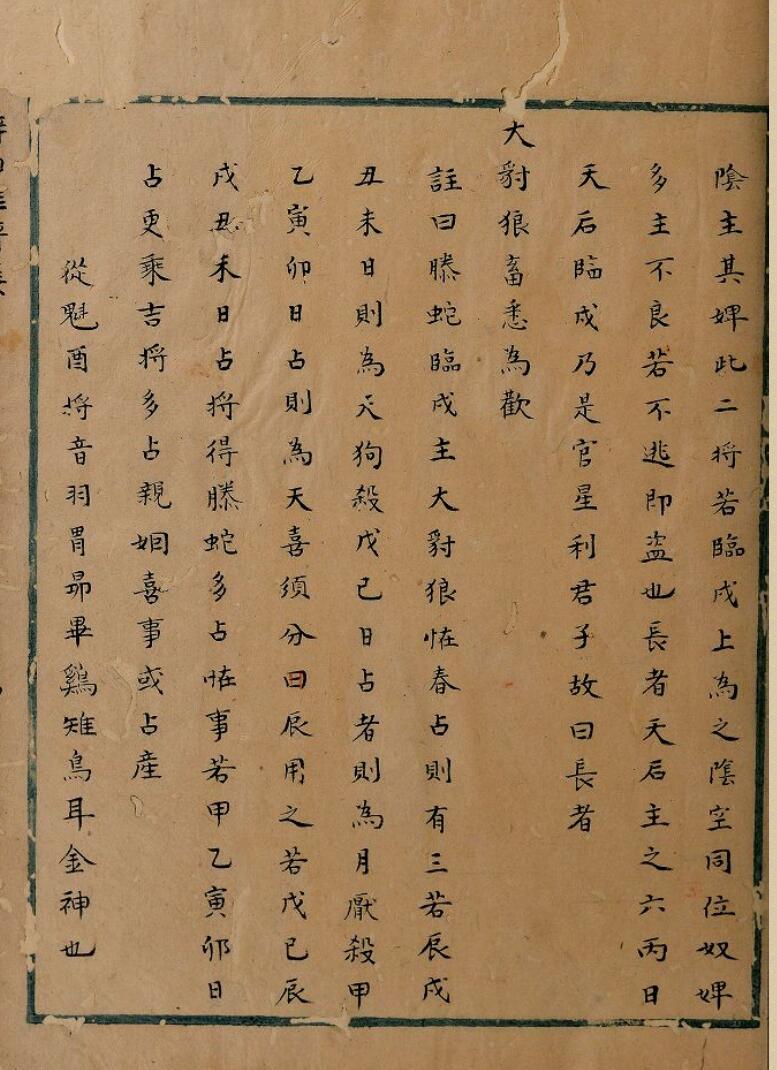 陰主其婢此二将若臨戌上為之陰空同位奴婢
多主不良若不逃即盗也長者天后主之六丙日
天后臨戌乃是官星利君子故曰長者
大豺狼畜悉為歡
註曰螣蛇臨戌主大豺狼恠春占則有三若辰戌
丑未日則為天狗殺戊己日占者則為月厭殺甲
乙寅卯日占則為天喜須分日辰用之若戊己辰
戌丑未日占将得螣蛇多占恠事若甲乙寅卯日
占更乘吉将多占親姻喜事或占産
從魁酉将音羽胃昴畢鷄雉鳥耳金神也